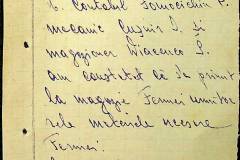 b. Contabil
mecanic
magazioner Diacenco S.
am constatat că s'a primit
la magazie Fermei urmitor
rele materiale necesare
Fermei: